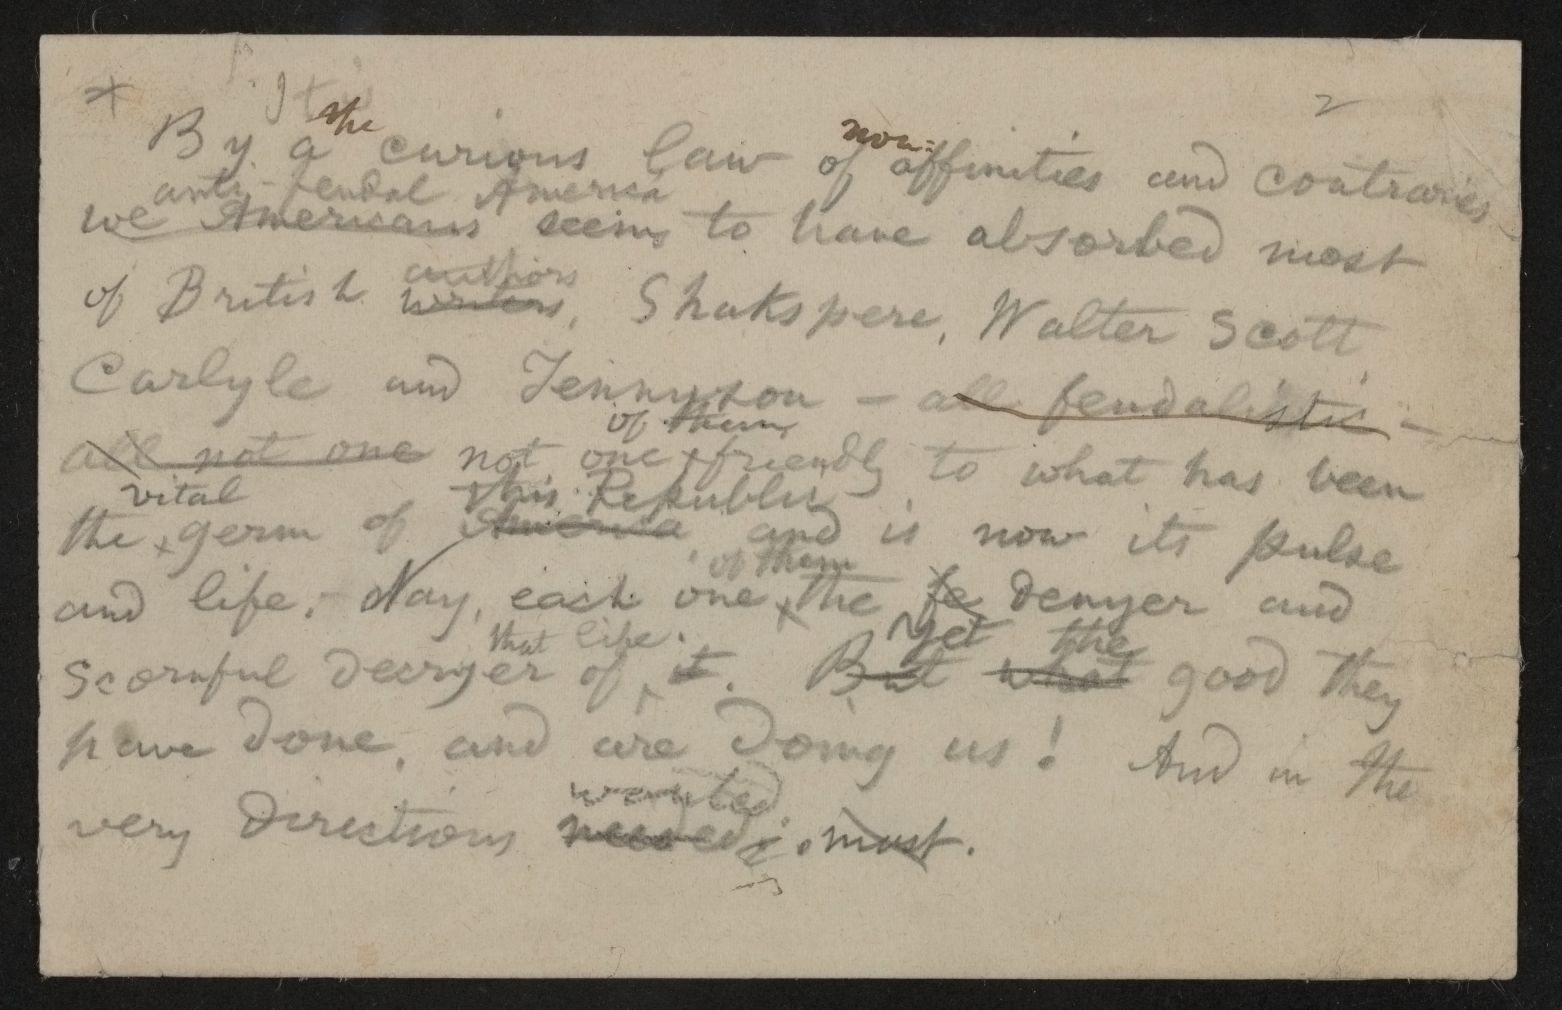 It is
* 2
the
non-
By a curious law of affinities and contraries
anti-feudal America
we Americans seems to have absorbed most
authors
of British writers, Shakspere, Walter Scott
Carlyle and Tennyson – all feudalistic –
of them
all not one not one friendly to what has been
vital this Republic
the germ of America and is now its pulse
of them
and life, – Nay, each one the fe denyer and
that life. yet the
scornful decryer of it. But what good they
have done, and are doing us! And in the
wanted
very directions needed; must.